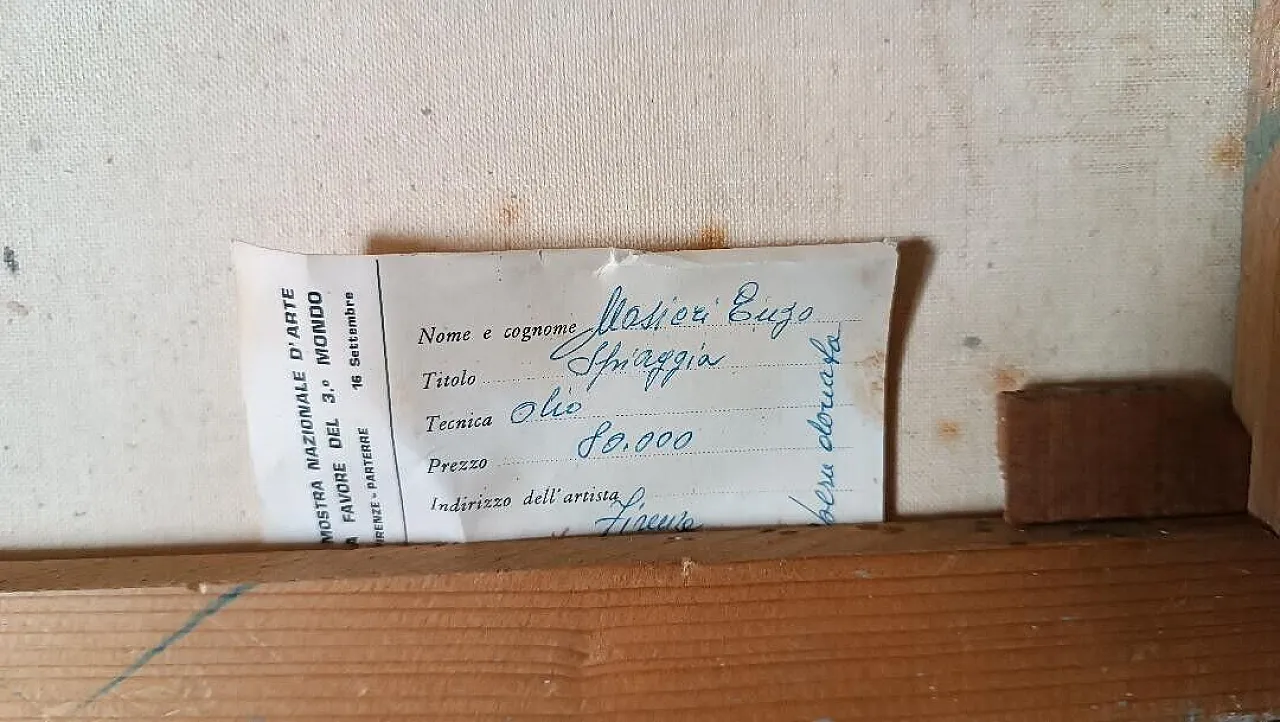 MOSTRA NAZIONALE D'ARTE
A FAVORE DEL 3.º MONDO
FIRENZE - PARTERRE 16 Settembre
Nome e cognome Masieri Enzo
Titolo Spiaggia
Tecnica Olio
Prezzo 80.000
Indirizzo dell'artista Firenze
opera donata